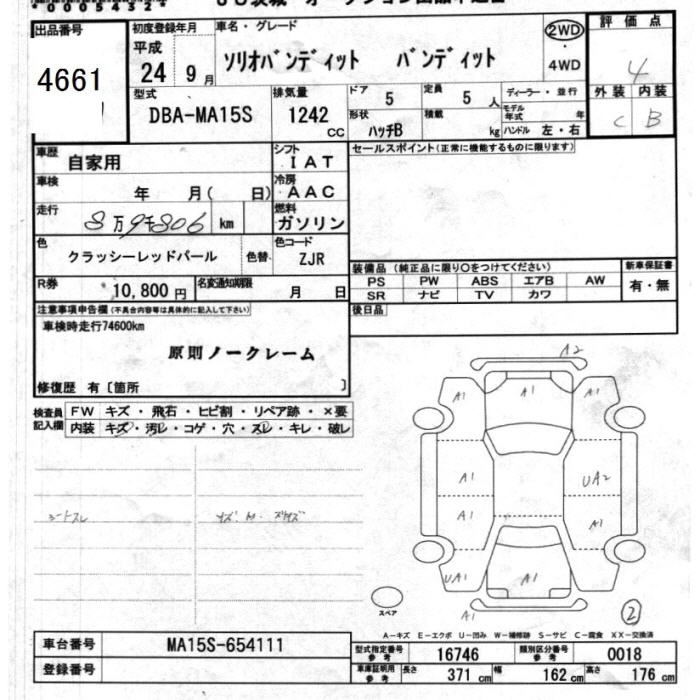 00054321
出品番号
4661
初度登録年月
平成
24 9月
車名・グレード
ソリオバンディット バンディット
2WD
4WD
評価点
4
型式
DBA-MA15S
排気量
1242
CC
ドア
5
定員
5人
形状
ハッチB
積載
kg
ディーラー・並行
モデル
年式 年
ハンドル 左・右
外装 内装
C B
車歴
自家用
シフト
IAT
セールスポイント(正常に機能するものに限ります)
車検
年 月( 日)
冷房
AAC
走行
8万9千806 km
燃料
ガソリン
色
クラッシーレッドパール
色替
色コード
ZJR
R券
10,800円
名変通知期限
月 日
装備品 (純正品に限り○をつけてください)
新車保証書
PS PW ABS エアB AW
SR ナビ TV カワ
有・無
後日品
注意事項申告欄(不具合内容等は具体的に記入して下さい)
車検時走行74600km
原則ノークレーム
修復歴 有〔箇所 〕
検査員
記入欄
FW キズ・飛石・ヒビ割・リペア跡・×要
内装 キズ・汚レ・コゲ・穴・スレ・キレ・破レ
シートスレ
A2
A1 A1 A1
A1 UA2
A1 A1
UA1 A1
A1
スペア
2
A-キズ E-エクボ U-凹み W-補修跡 S-サビ C-腐食 XX-交換済
車台番号
MA15S-654111
登録番号
型式指定番号
参考
16746
類別区分番号
参考
0018
車庫証明用
参考
長さ
371 cm
幅
162 cm
高さ
176 cm